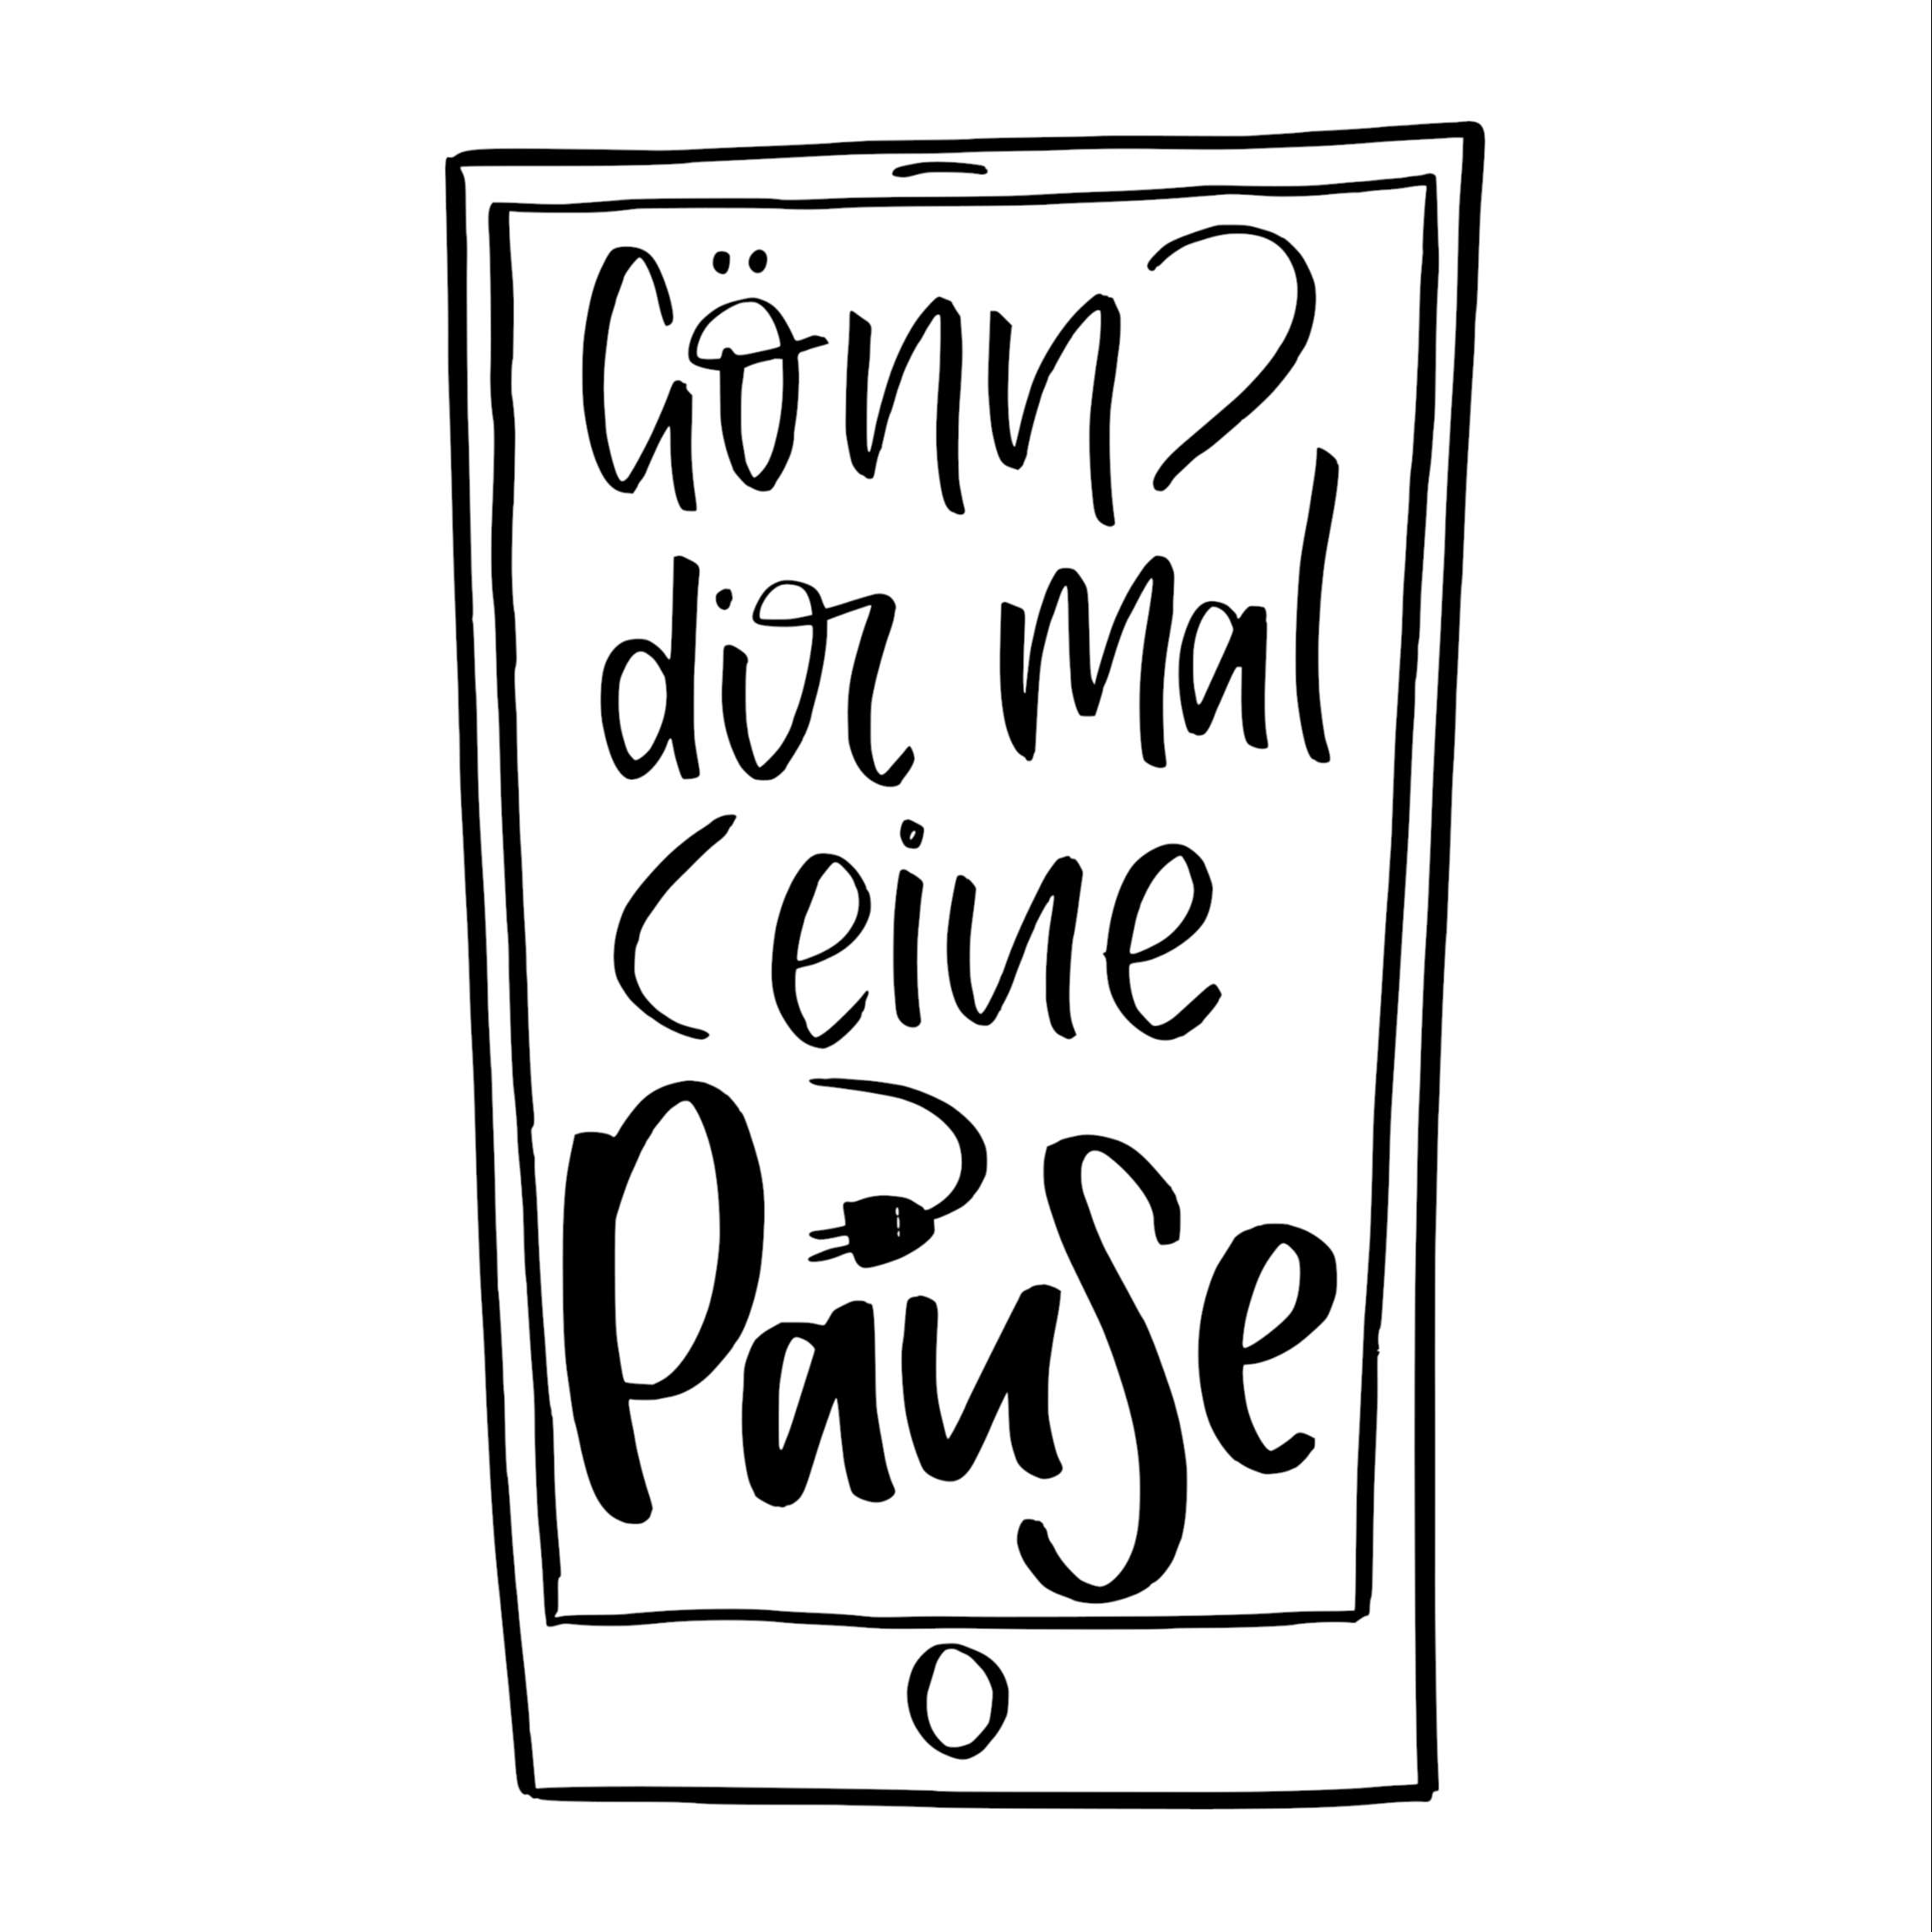 Gönn
dir mal
eine
Pause